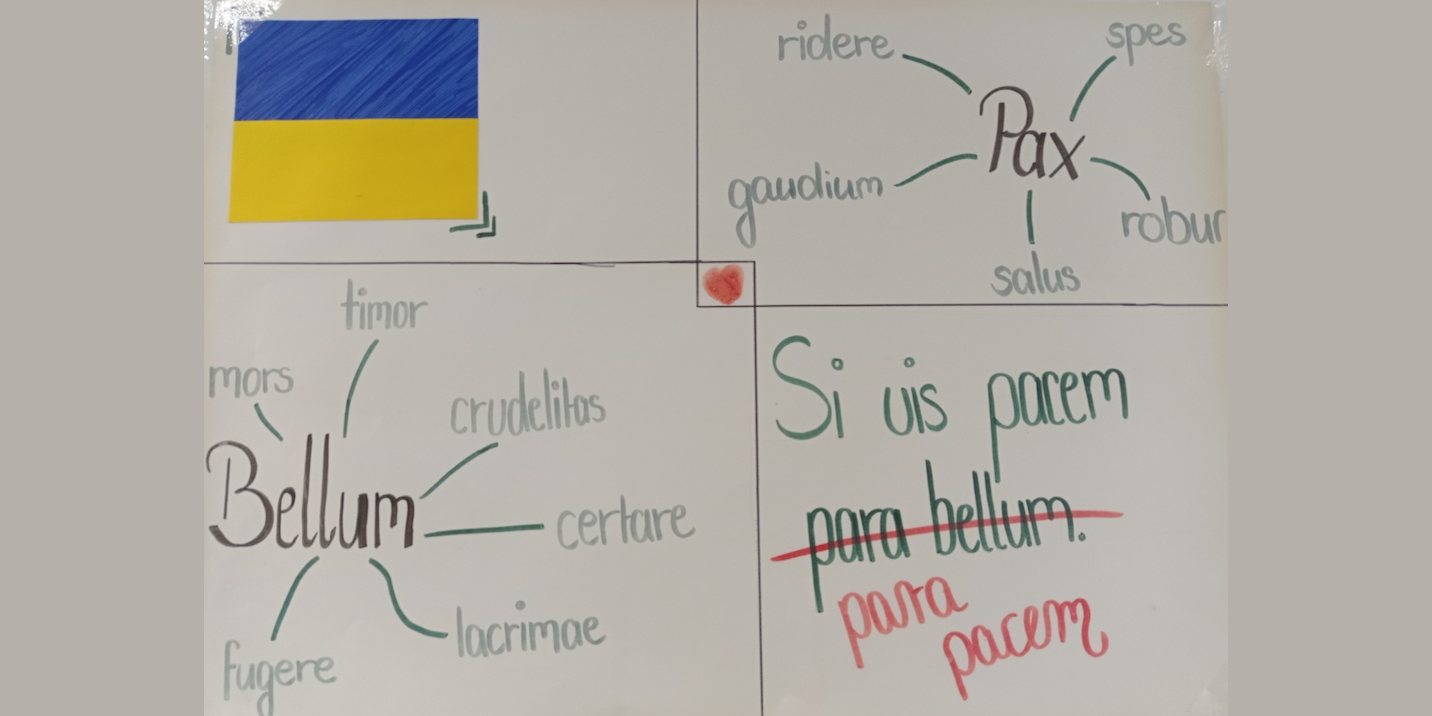 ridere
spes
Pax
gaudium
robur
salus
timor
mors
crudelitas
Bellum
certare
lacrimae
fugere
Si vis pacem
para bellum.
para
pacem